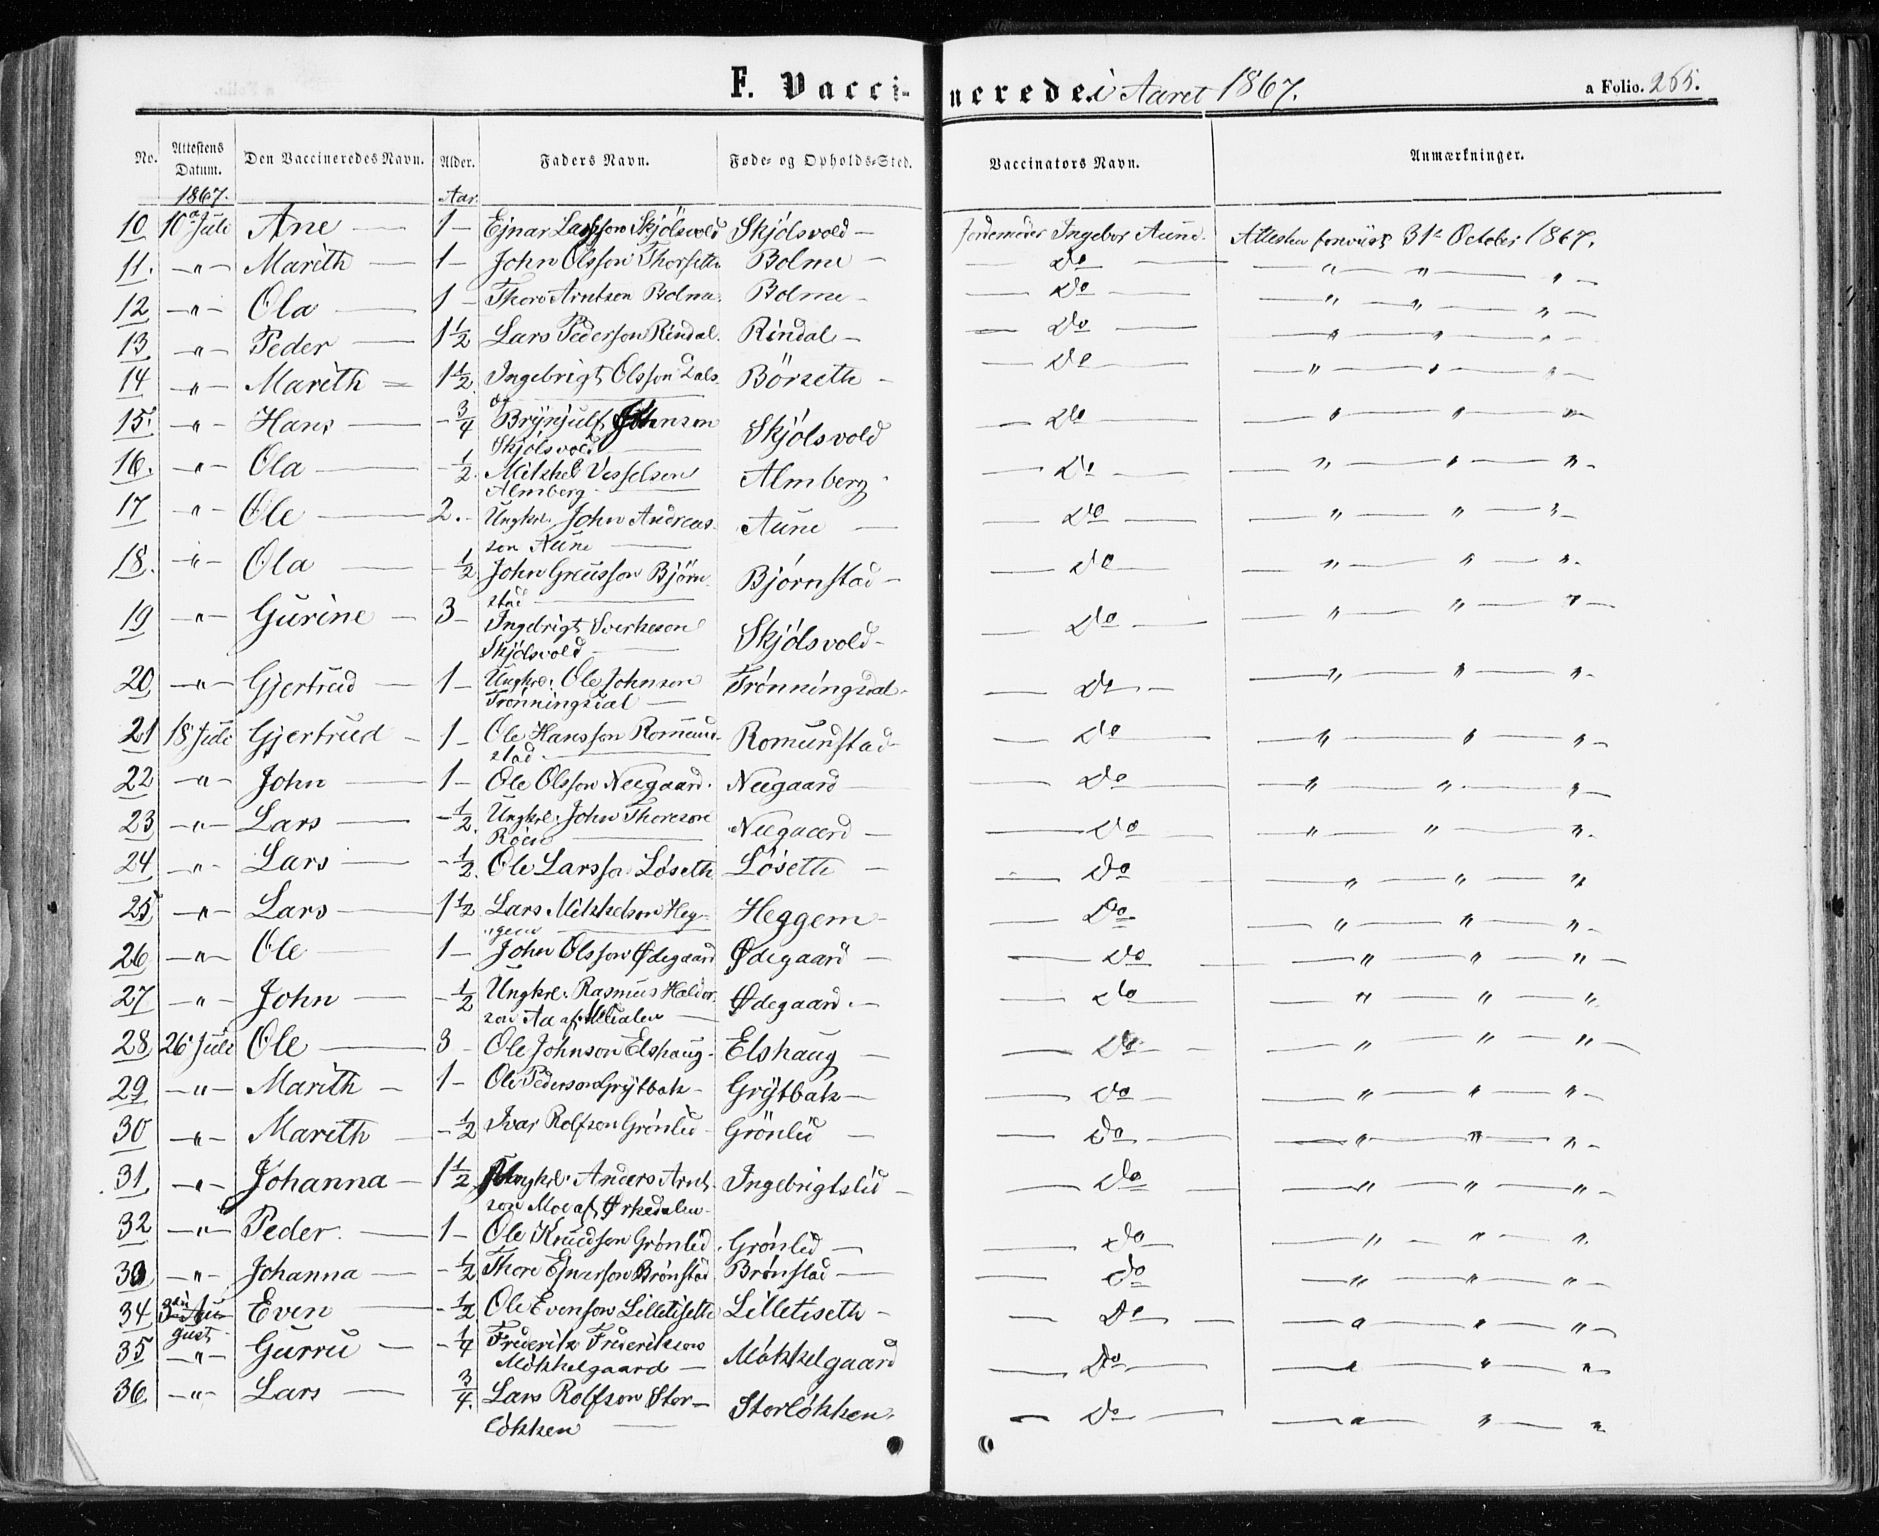 F. Vaccinerede i Aaret 1867. a Folio. 265.
No. Attestens Datum. Den Vaccineredes Navn. Alder. Faders Navn. Føde- og Opholds-Sted. Vaccinators Navn. Anmærkninger.
1867. Aar.
10 10de Juli Ane — 1 — Ejnar Larsson Skjölsvold Skjölsvold — Jordemoder Ingebor Aune. Attesten forviist 31te October 1867.
11. — " — Marith — 1 — John Olsson Thorseth Bolme — — Do — — " — " — " —
12 — " — Ola — 1 — Thore Arntson Bolme. Bolme — — Do — — " — " — " —
13 — " — Peder — 1½ Lars Pederson Rindal. Rindal — — Do — — " — " — " —
14 — " — Marith — 1½ Ingebrigt Olsson Börseth — — Do — — " — " — " —
15. — " — Hans — — ¾ Brynjulf Johnson Skjölsvold — Do — — " — " — " —
Skjölsvold —
16. — " — Ola — — ½ Mikkel Vesselsen Almberg. — Do — — " — " — " —
Almberg —
17 — " — Ole — 2. — Ungkrl. John Andreas- Aune — — Do — — " — " — " —
son Aune —
18. — " — Ola — — ½ John Greusson Björn- Björnstad — — Do — — " — " — " —
stad —
19 — " — Gurine — 3 — Ingebrigt Sverkeson Skjölsvold — — Do — — " — " — " —
Skjölsvold —
20 — " — Gjertrud — 1 — Ungkrl. Ole Johnson Trönningsdal. — Do — — " — " — " —
Trönningsdal —
21 18 Juli Gjertrud — 1 — Ole Hansson Romund- Romundstad — — Do — — " — " — " —
stad —
22 — " — John — 1 — Ole Olsson Nergaard. Nergaard — — Do — — " — " — " —
23 — " — Lars — — ½. Ungkrl. John Thoreson Nergaard — — Do — — " — " — " —
24 — " — Lars — — ½. Ole Larsson Löseth Löseth — — Do — — " — " — " —
25 — " — Lars — 1½ Lars Mikkelson Heg- Heggem — — Do — — " — " — " —
gem —
26 — " — Ole — 1 — John Olsson Ødegaard Ødegaard — — Do — — " — " — " —
27 — " — John — — ½ Ungkrl. Rasmus Haldor- Ødegaard. — — Do — — " — " — " —
son Aa af Meldalen —
28 26 Juli Ole — 3 — Ole Johnson Elshaug — Elshaug — — Do — — " — " — " —
29 — " — Marith — 1 — Ole Pederson Grytbak — Grytbak — — Do — — " — " — " —
30 — " — Marith — — ½ Ivar Rolfson Grönlid — Grönlid — — Do — — " — " — " —
31 — " — Johanna — 1½ Ungkrl. Anders Arnt- Ingebrigtslid — — Do — — " — " — " —
son Moe af Ørkedalen —
32 — " — Peder. — 1 — Ole Knudson Grönlid. Grönlid — — Do — — " — " — " —
33 — " — Johanna — — ½ Thore Ejnarson Brönstad Brönstad — — Do — — " — " — " —
34 3die Au- Even — — ½ Ole Evenson Lilletiseth Lilletiseth — — Do — — " — " — " —
gust
35 — " — Gurru — — ¼ Frederik Frederikson Mökkelgaard — Do — — " — " — " —
Mökkelgaard —
36 — " — Lars — ¾. Lars Rolfson Stor- Storlökken. — Do — — " — " — "
lökken —